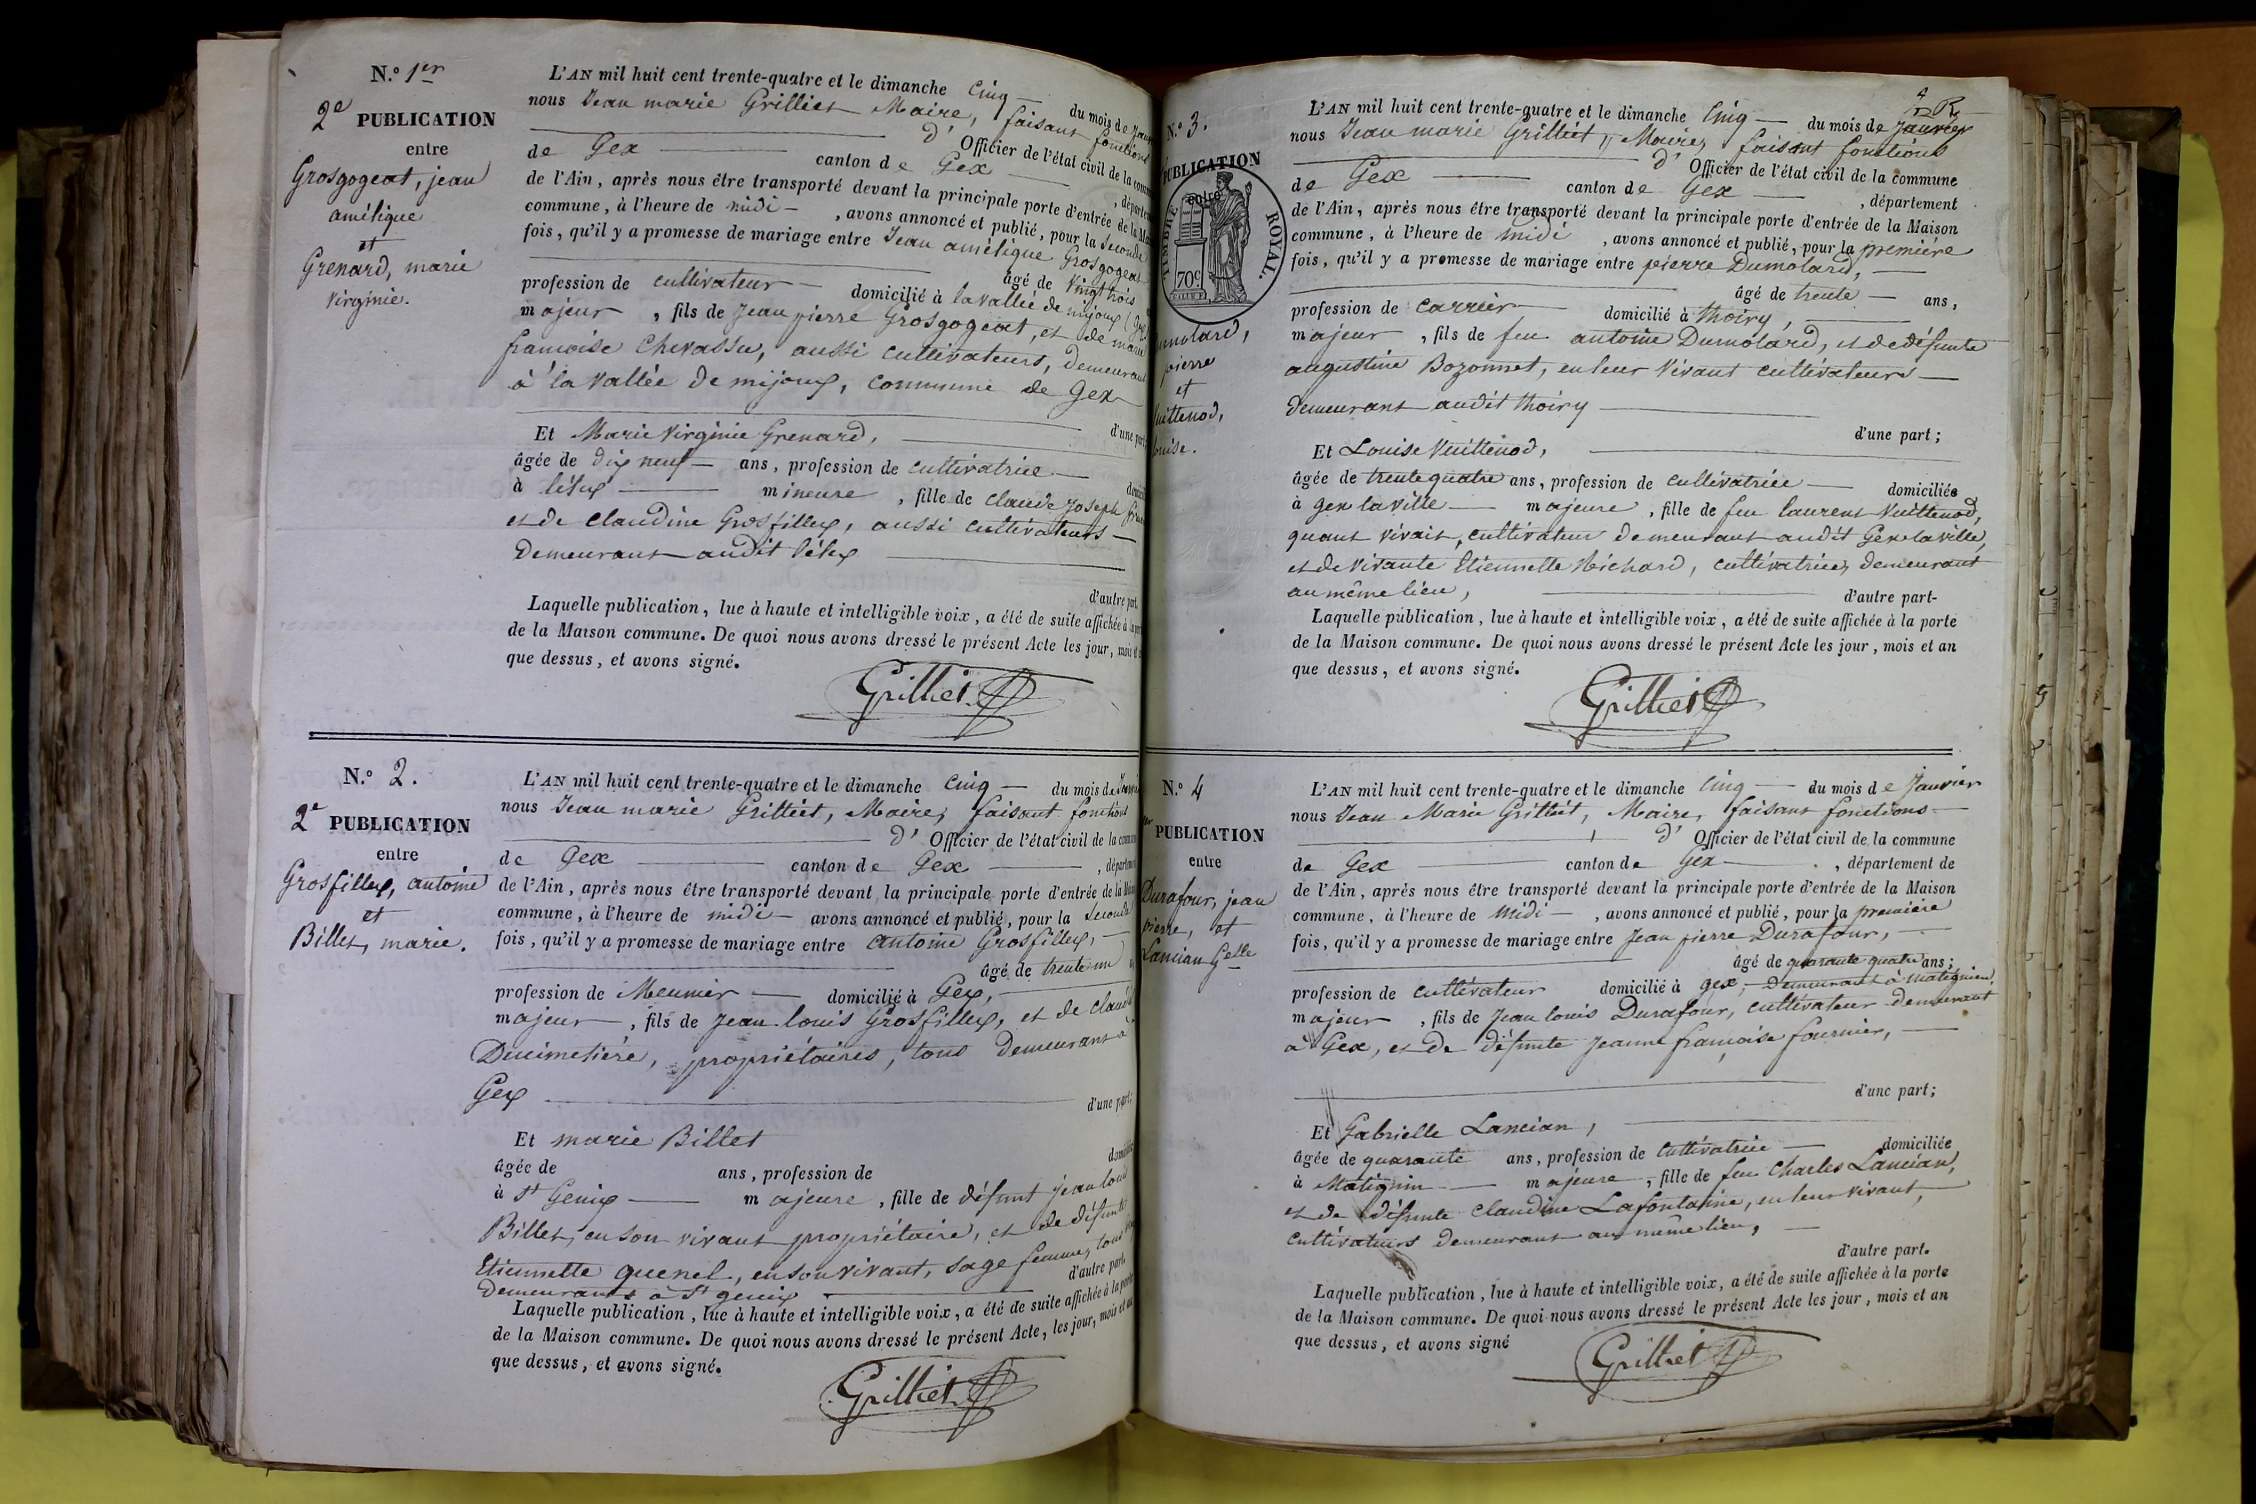 N.° 1er
2e PUBLICATION
entre
Grosgogeat, jean
amélique
et
Grenard, marie
virginie.
L'AN mil huit cent trente-quatre et le dimanche Cinq du mois de
nous Jean marie Grilliet Maire, faisant fonctions
d' Officier de l'état civil de la
de Gex canton de Gex
de l'Ain, après nous être transporté devant la principale porte d'entrée de la
commune, à l'heure de midi, avons annoncé et publié, pour la Seconde
fois, qu'il y a promesse de mariage entre Jean amélique Grosgogeat
âgé de vingt trois
profession de cultivateur domicilié à la vallée de mijoux
majeur, fils de Jean pierre Grosgogeat, et de marie
francoise Chevassu, aussi cultivateurs, demeurant
à la vallée de mijoux, commune de Gex
d'une part
Et Marie Virginie Grenard,
âgée de dix neuf ans, profession de cultivatrice
à lélex mineure, fille de Claude Joseph
et de Claudine Grosfilley, aussi cultivateurs
Demeurant audit lélex
d'autre part.
Laquelle publication, lue à haute et intelligible voix, a été de suite affichée à la
de la Maison commune. De quoi nous avons dressé le présent Acte les jour, mois et
que dessus, et avons signé.
Grilliet
N.° 2.
2e PUBLICATION
entre
Grosfilley, antoine
et
Billet, marie.
L'AN mil huit cent trente-quatre et le dimanche Cinq du mois de
nous Jean marie Grilliet, Maire, faisant fonctions
d' Officier de l'état civil de la
de Gex canton de Gex
de l'Ain, après nous être transporté devant la principale porte d'entrée de la
commune, à l'heure de midi avons annoncé et publié, pour la Seconde
fois, qu'il y a promesse de mariage entre antoine Grosfilley,
âgé de trente un
profession de Meunier domicilié à Gex,
majeur, fils de Jean louis Grosfilley, et de
Ducimetière, propriétaires, tous demeurant à
Gex
d'une part;
Et marie Billet
âgée de ans, profession de
à St Genix majeure, fille de défunt jean louis
Billet, en son vivant propriétaire, et de défunte
Etiennette quenel, en son vivant, sage femme, tous
d'autre part.
demeurants à St genix
Laquelle publication, lue à haute et intelligible voix, a été de suite affichée à la porte
de la Maison commune. De quoi nous avons dressé le présent Acte, les jour, mois et an
que dessus, et avons signé.
Grilliet
N.° 3.
PUBLICATION
entre
TIMBRE ROYAL.
70c
pierre
et
L'AN mil huit cent trente-quatre et le dimanche Cinq du mois de Janvier
nous Jean marie Grilliet, Maire, faisant fonctions
d' Officier de l'état civil de la commune
de Gex canton de Gex, département
de l'Ain, après nous être transporté devant la principale porte d'entrée de la Maison
commune, à l'heure de midi, avons annoncé et publié, pour la première
fois, qu'il y a promesse de mariage entre pierre Dumolard,
âgé de trente ans,
profession de carrier domicilié à thoiry,
majeur, fils de feu antoine Dumolard, et de défunte
augustine Bozonnet, en leur vivant cultivateurs
demeurant audit thoiry
d'une part;
Et Louise Vuittenod,
âgée de trente quatre ans, profession de cultivatrice domiciliée
à gex la ville majeure, fille de feu laurent Vuittenod,
quant vivait, cultivateur demeurant audit Gex la ville,
et de vivante Etiennette Richard, cultivatrice, demeurant
au même lieu,
d'autre part-
Laquelle publication, lue à haute et intelligible voix, a été de suite affichée à la porte
de la Maison commune. De quoi nous avons dressé le présent Acte les jour, mois et an
que dessus, et avons signé.
Grilliet
N.° 4
PUBLICATION
entre
Durafour, jean
pierre, et
Lancian Gelle
L'AN mil huit cent trente-quatre et le dimanche Cinq du mois de Janvier
nous Jean Marie Grilliet, Maire, faisant fonctions
d' Officier de l'état civil de la commune
de Gex canton de Gex, département de
de l'Ain, après nous être transporté devant la principale porte d'entrée de la Maison
commune, à l'heure de midi, avons annoncé et publié, pour la première
fois, qu'il y a promesse de mariage entre Jean pierre Durafour,
âgé de quarante quatre ans;
profession de cultivateur domicilié à gex, demeurant à matignin,
majeur, fils de Jean louis Durafour, cultivateur demeurant
à Gex, et de défunte jeanne françoise fournier,
d'une part;
Et Gabrielle Lancian,
âgée de quarante ans, profession de Cultivatrice domiciliée
à Matignin majeure, fille de feu Charles Lancian,
et de défunte Claudine Lafontaine, en leur vivant,
Cultivateurs demeurant au même lieu,
d'autre part.
Laquelle publication, lue à haute et intelligible voix, a été de suite affichée à la porte
de la Maison commune. De quoi nous avons dressé le présent Acte les jour, mois et an
que dessus, et avons signé
Grilliet